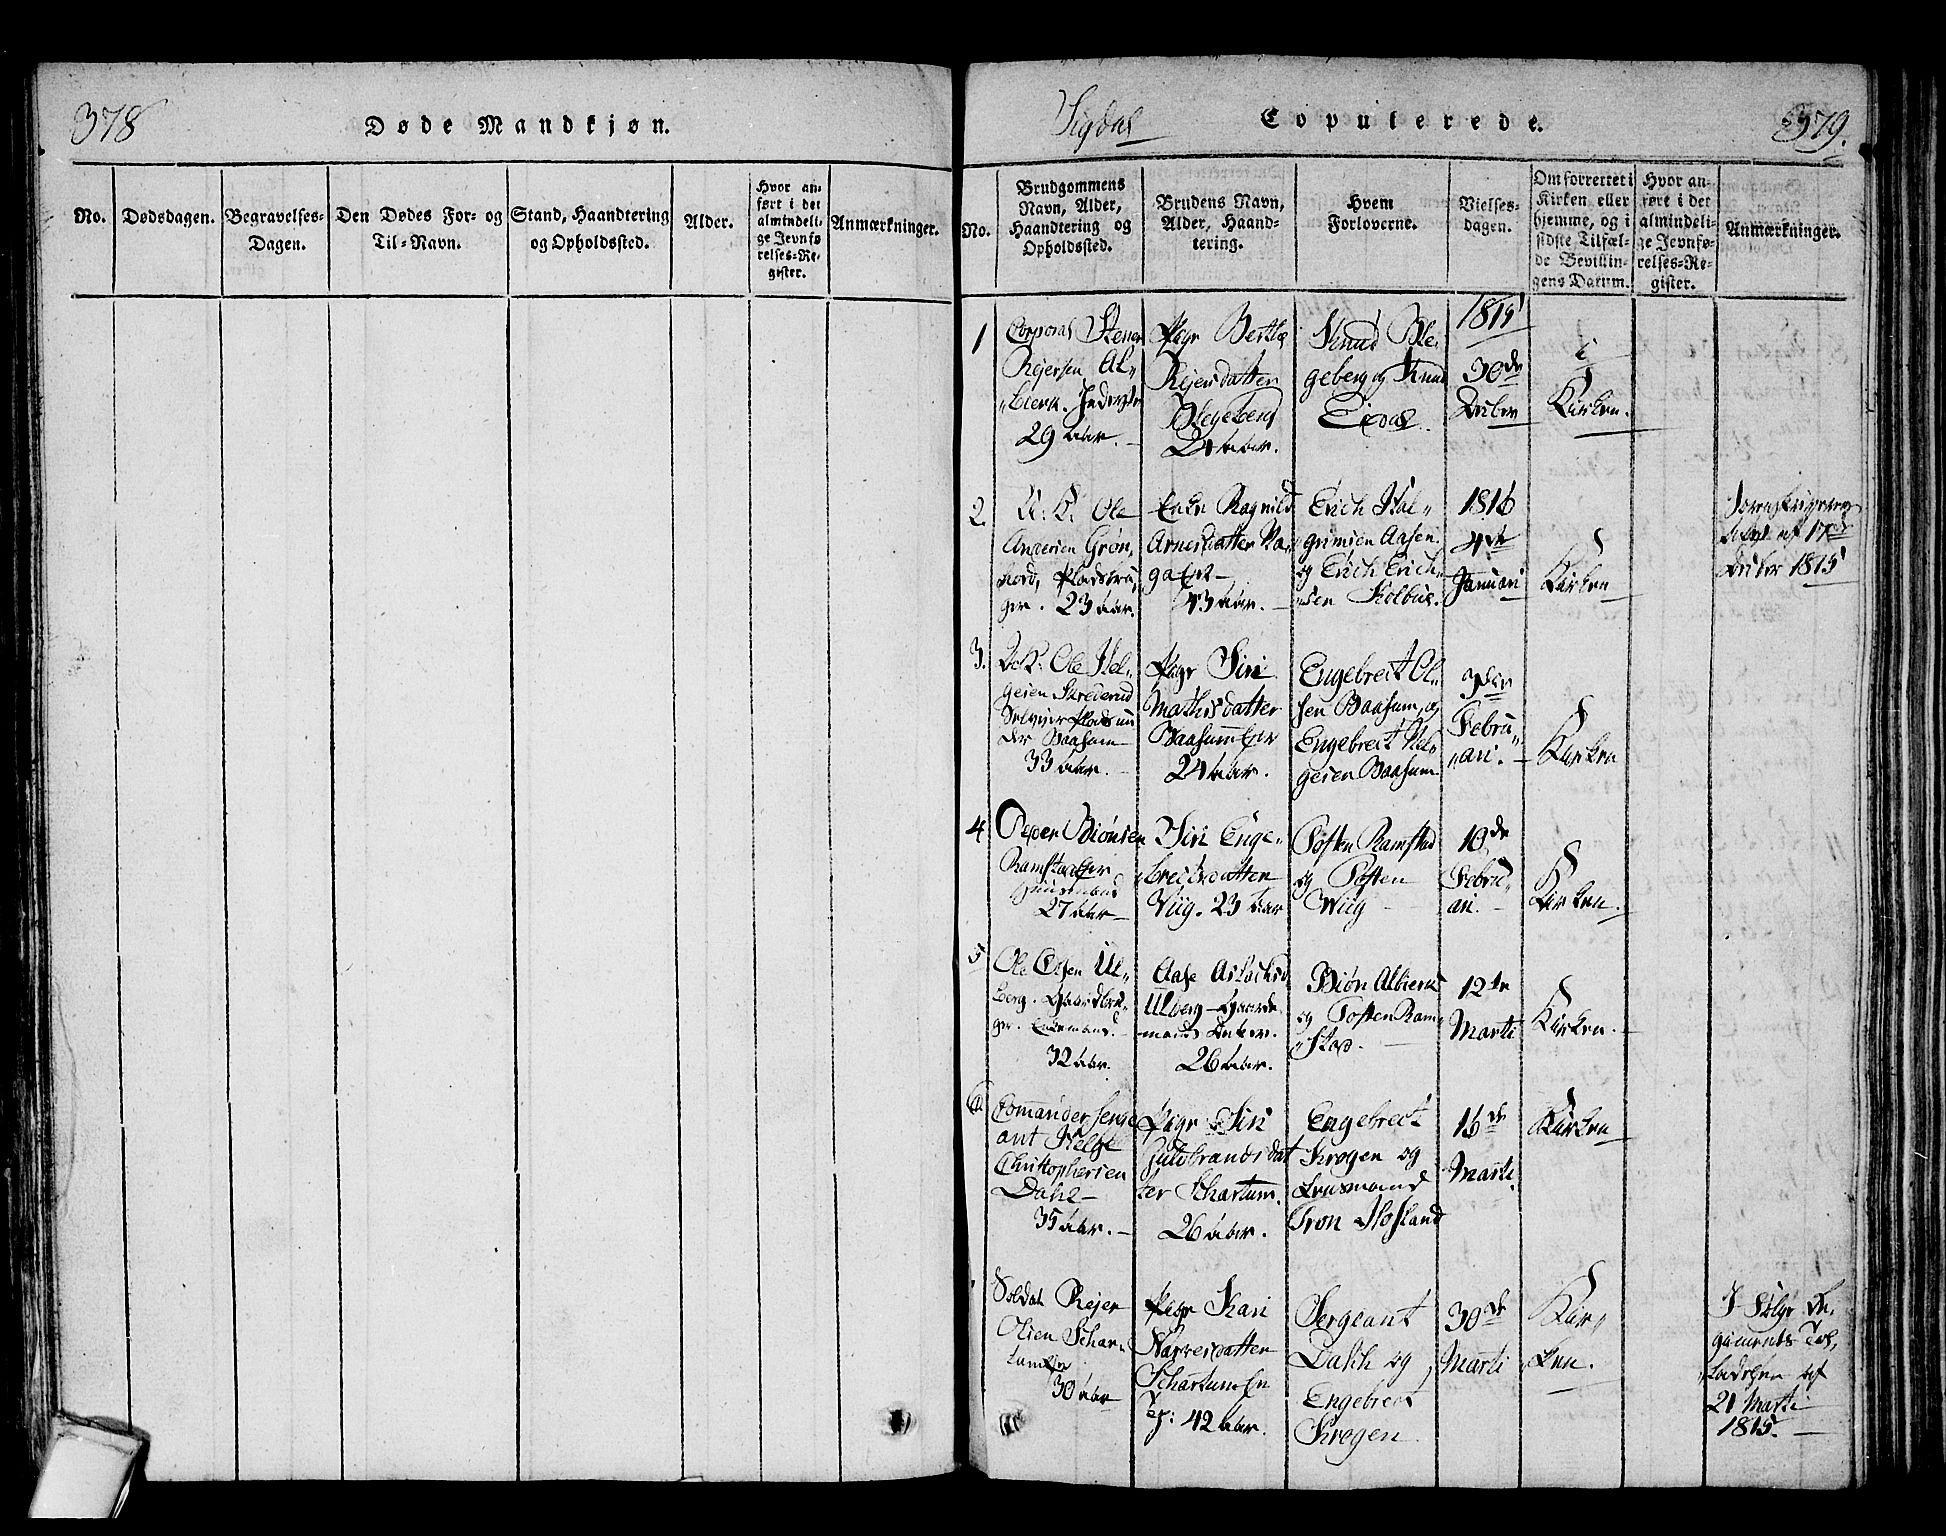 378
Døde Mandkjøn.
No.
Dødsdagen.
Begravelses-
Dagen.
Den Dødes For- og
Til-Navn.
Stand, Haandtering
og Opholdssted.
Alder.
Hvor an-
ført i det
almindeli-
ge Jevnfø-
relses-Re-
gister.
Anmærkninger.
Sigdal
Copulerede.
379.
No.
Brudgommens
Navn, Alder,
Haandtering og
Opholdssted.
Brudens Navn,
Alder, Haand-
tering.
Hvem
Forloverne.
Vielses-
dagen.
Om forrettet i
Kirken eller
hjemme, og i
sidste Tilfæl-
de Bevillin-
gens Datum.
Hvor an-
ført i det
almindeli-
ge Jevnfø-
relses-Re-
gister.
Anmærkninger.
1
Corporal Stener
Rejersen Al-
29 aar.
Pige Berthe
Rejersdatter
Blegeberg
24 aar.
Knud Ble-
geberg og Knud
Eidal.
1815
30de
Decber
i
Kirken.
2.
U: K: Ole
Andersen Grøn-
hord,
23 aar.
Enke Ragnild
Arnesdatter
43 aar.
Erich Hal-
grimsen Aasen
og Erich Erich-
sen Kolbue.
1816
4de
Januari
Kirken
17de
Decbr 1815
3.
Ole Hel-
gesen Skrederud
der Baasum
33 aar.
Pige Siri
Mathisdatter
Baasum Eier
24 aar.
Engebrect Ol-
sen Baasum, og
Engebrect Hel-
gesen Baasum
3die
Febru-
ari.
Kirken
4
Peder Biønsen
Ramstad Eier
27 aar
Siri Enge-
brectsdatter
Viig. 23 aar
Tosten Ramstad
og Tosten
Wiig
10de
Febru-
ari.
Kirken.
5
Ole Olsen Ul-
berg. Gaardbru-
ger. Enkemand.
32 aar.
Aase Aslacksd
Ulberg Gaard-
mands Enke.
26 aar.
Biøn Albierk
og Tosten Ram-
stad.
12te
Marti
Kirken.
Comandersserge
ant Helge
Christophersen
Dahl
35 aar.
Pige Siri
Gulbrandsdat
ter Schartum.
26 aar.
Engebrect
Krogen og
Lensmand
Tron Hofland
16de
Marti.
Kirken
Soldat Rejer
Olsen Schar-
tum Eie
30 aar
Pige Kari
Narvesdatter
Schartum
42 aar.
Sergeant
Dahl og
Engebrect
Krogen
30de
Marti
Kir-
ken.
I Følge Re-
giments Til-
ladelse af
21 Marti
1815.